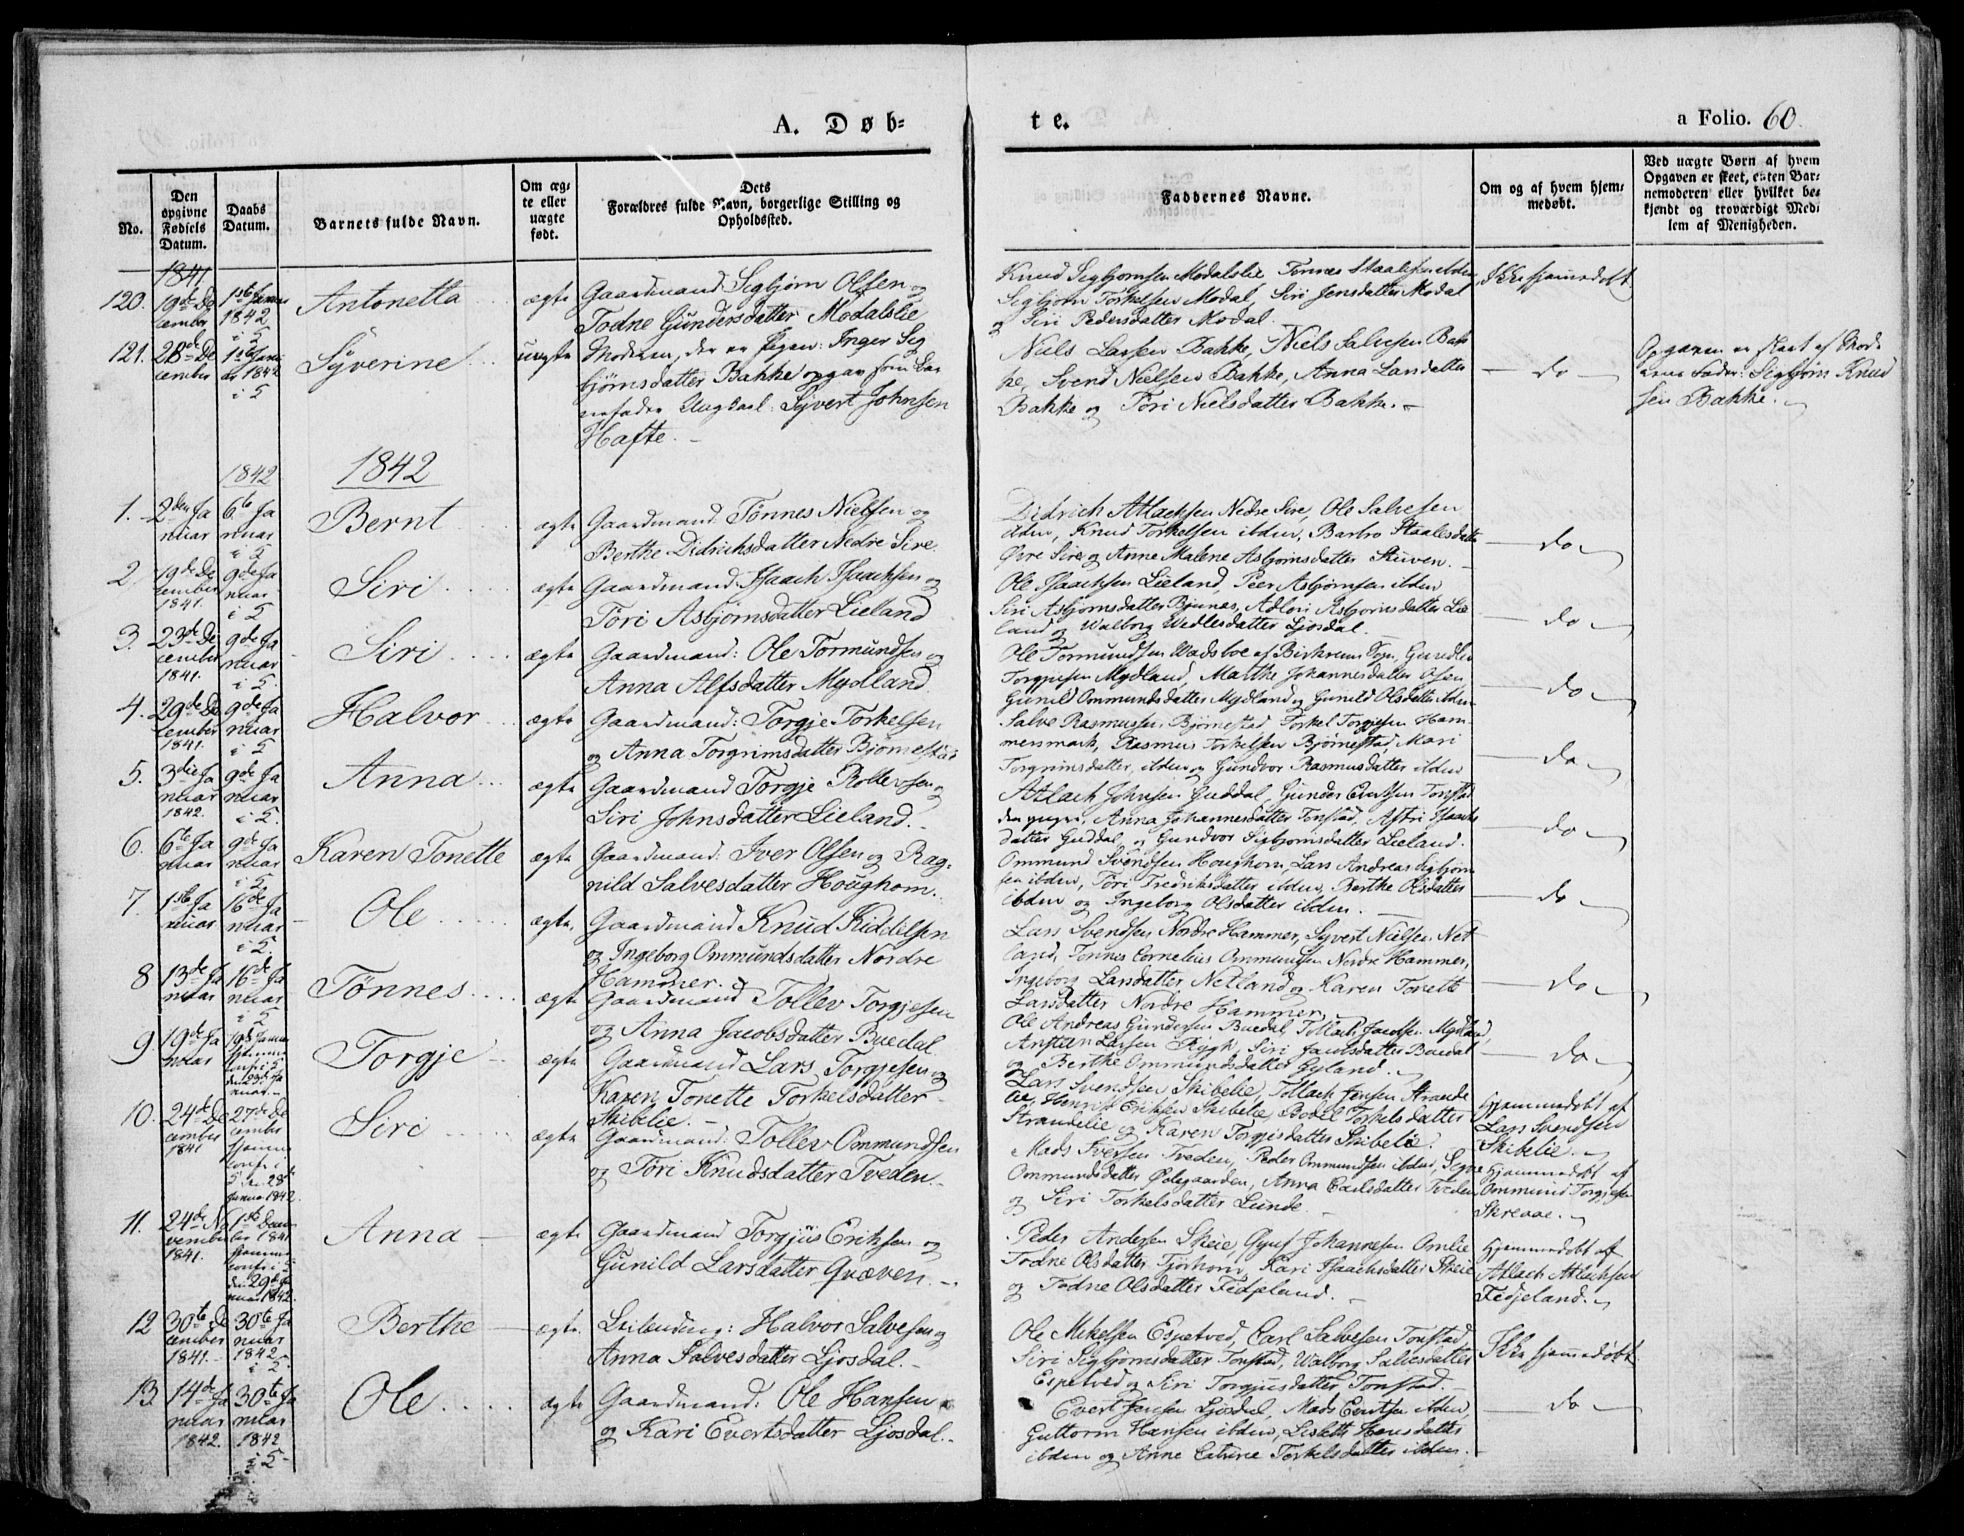 A. Døb-
te.
a Folio. 60.
No.
Den opgivne Fødsels Datum.
Daabs Datum.
Barnets fulde Navn.
Om ægte eller uægte født.
Dets Forældres fulde Navn, borgerlige Stilling og Opholdssted.
Faddernes Navne.
Om og af hvem hjemmedøbt.
Ved uægte Børn af hvem Opgaven er skeet, enten Barnemoderen eller hvilket bekjendt og troværdigt Medlem af Menigheden.
1841
120. 19de De
cember
1842
i 5
Antonetta
ægte
Gaardmand Sigbjørn Olsen og
Todne Gundersdatter Modalslie
Knud Sigbjørnsen Modalslie, Tønnes Staalesen ibden
Sigbjørn Torkelsen Modal, Siri Jensdatter Modal
og Siri Pedersdatter Modal.
Ikke hjemmedøbt
121. 28de De
cember
1842
i 5
Syverine
uægte
Moderen, der er Pigen: Inger Sig
bjørnsdatter Bakke opgav som Bar
nefader Ungkarl: Syvert Johnsen
Hafte.
Niels Larsen Bakke, Niels Salvesen Bak
ke, Svend Nielsen Bakke, Anna Larsdatter
Bakke og Tori Nielsdatter Bakke.
do
Opgaven er skeet af Mod
erens Fader: Sigbjørn Knud
sen Bakke.
1842
1842
1. 2den Ja
nuar
6te Ja
nuar
i 5
Bernt
ægte
Gaardmand: Tønnes Nielsen og
Berthe Didrichsdatter Nedre Sire.
Didrich Atlachsen Nedre Sire, Ole Salvesen
ibden, Knud Torkelsen ibden, Barbro Staalesdatter
Øvre Sire og Anne Malene Asbjørnsdatter Stuven.
do
2 19de De
cember
1841.
9de Ja
nuar
i 5
Siri
ægte
Gaardmand: Isaach Isaachsen og
Tori Asbjørnsdatter Lieland
Ole Isaachsen Lieland, Peer Asbjørnsen ibden
Siri Asbjørnsdatter Bjunes, Adlori Asbjørnsdatter Lie
land og Walborg Wedlesdatter Ljosdal.
do
3. 23de De
cember
1841.
9de Ja
nuar
i 5
Siri
ægte
Gaardmand: Ole Tormundsen og
Anna Alfsdatter Mydland.
Ole Tormundsen Wadsboe af Birkrems Sogn, Gundlev
Torgjusen Mydland, Marthe Johannesdatter Osen
Gunild Ommundsdatter Mydland og Gunild Olsdatter ibden
do
4. 29de De
cember
1841.
9de Ja
nuar
i 5
Halvor
ægte
Gaardmand: Torgje Torkelsen
og Anna Torgrimsdatter Bjørnestad
Salve Rasmussen Bjørnestad, Torkel Torgjesen Ham
mersmark, Rasmus Torkelsen Bjørnestad, Mari
Torgrimsdatter, ibden og Gundvor Rasmusdatter ibden
do
5. 3die Ja
nuar
1842.
9de Ja
nuar
i 5.
Anna
ægte
Gaardmand Torgje Rollevsen og
Siri Johnsdatter Lieland.
Atlach Johnsen Guddal, Gunder Evertsen Tonstad
den yngre, Anna Johannesdatter Tonstad, Astri Isaachs
datter Guddal, og Gundvor Sigbjørnsdatter Lieland.
do
6. 6te Ja
nuar
9de Ja
nuar
i 5
Karen Tonette
ægte
Gaardmand: Iver Olsen og Rag-
nild Salvesdatter Houghom.
Ommund Svendsen Houghom, Lars Andreas Sigbjørn
sen ibden, Tori Fredriksdatter ibden, Berthe Olsdatter
ibden og Ingeborg Olsdatter ibden.
do
7. 1ste Ja
nuar
16de Ja
nuar
i 5
Ole
ægte,
Gaardmand Knud Kiddelsen
og Ingeborg Ommundsdatter Nordre
Hammer.
Lars Svendsen Nordre Hammer, Syvert Nielsen Net
land, Tønnes Cornelius Ommundsen Nordre Hammer,
Ingeborg Larsdatter Netland og Karen Tonette
Larsdatter Nordre Hammer.
do
8 13de Ja
nuar
16de Ja
nuar
i 5
Tønnes
ægte
Gaardmand Tollev Torgjesen
og Anna Jacobsdatter Buedal
Ole Andreas Gundersen Buedal, Tollach Jacobsen Mydland,
Ansten Larsen Rygh, Siri Jacobsdatter Buedal
og Berthe Ommundsdatter Gyland.
do
9 19de Ja
nuar
Torgje
ægte
Gaardmand Lars Torgjesen og
Karen Tonette Torkelsdatter
Skibelie.
Lars Svendsen Skibelie, Tollach Jensen Strande
lie, Henrik Eriksen Skibelie, Bodel Torkelsdatter
Strandelie og Karen Torgjesdatter Skibelie.
Hjemmedøbt af
Lars Svendsen
Skibelie.
10. 24de De
cember
1841
27de De
cember
Januar 1842.
Siri
ægte
Gaardmand: Tollev Ommundsen
og Tori Knudsdatter Tveden.
Mads Iversen Tveden, Peder Ommundsen ibden, Segne
Ommundsdatter Ødegaarden, Anna Carlsdatter Tveden
og Siri Torkelsdatter Lunde.
Hjemmedøbt af
Ommund Torgjesen
Skreaae.
11. 24de No
vember
1841.
1ste Decem
ber 1841
nuar 1842.
Anna
ægte
Gaardmand Torgjus Eriksen og
Gunild Larsdatter Qvæven.
Peder Andersen Skeie, Gjerul Johannesen Omlie
Todne Olsdatter Tjørhom, Kari Isaachsdatter Skeie
og Todne Olsdatter Fedjeland.
Hjemmedøbt af
Atlach Atlachsen
Fedjeland.
12 30te De
cember
1841.
30te Ja
nuar
1842
i 5
Berthe
ægte.
Leilending: Halvor Salvesen og
Anna Salvesdatter Ljosdal.
Ole Mikelsen Espetved, Carl Salvesen Tonstad,
Siri Sigbjørnsdatter Tonstad, Walborg Salvesdatter
Espetved og Siri Torgjusdatter Tonstad.
Ikke hjemmedøbt.
13. 14de Ja
nuar
1842.
30te Ja
nuar
1842
i 5
Ole
ægte
Gaardmand: Ole Hansen
og Kari Evertsdatter Ljosdal.
Evert Jensen Ljosdal, Mads Evertsen ibden,
Guttorm Hansen ibden, Lisbeth Hansdatter
ibden og Anne Catrine Torkelsdatter ibden.
do